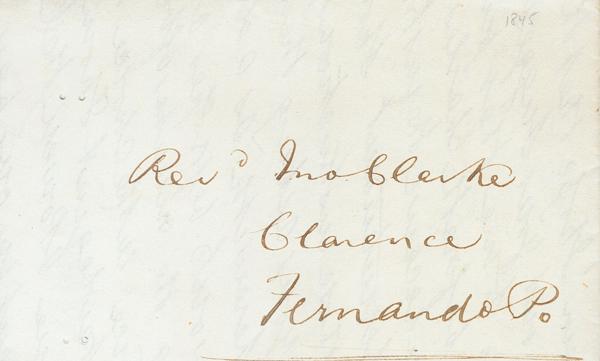 1845
Revd Jno Clarke
Clarence
Fernando Po